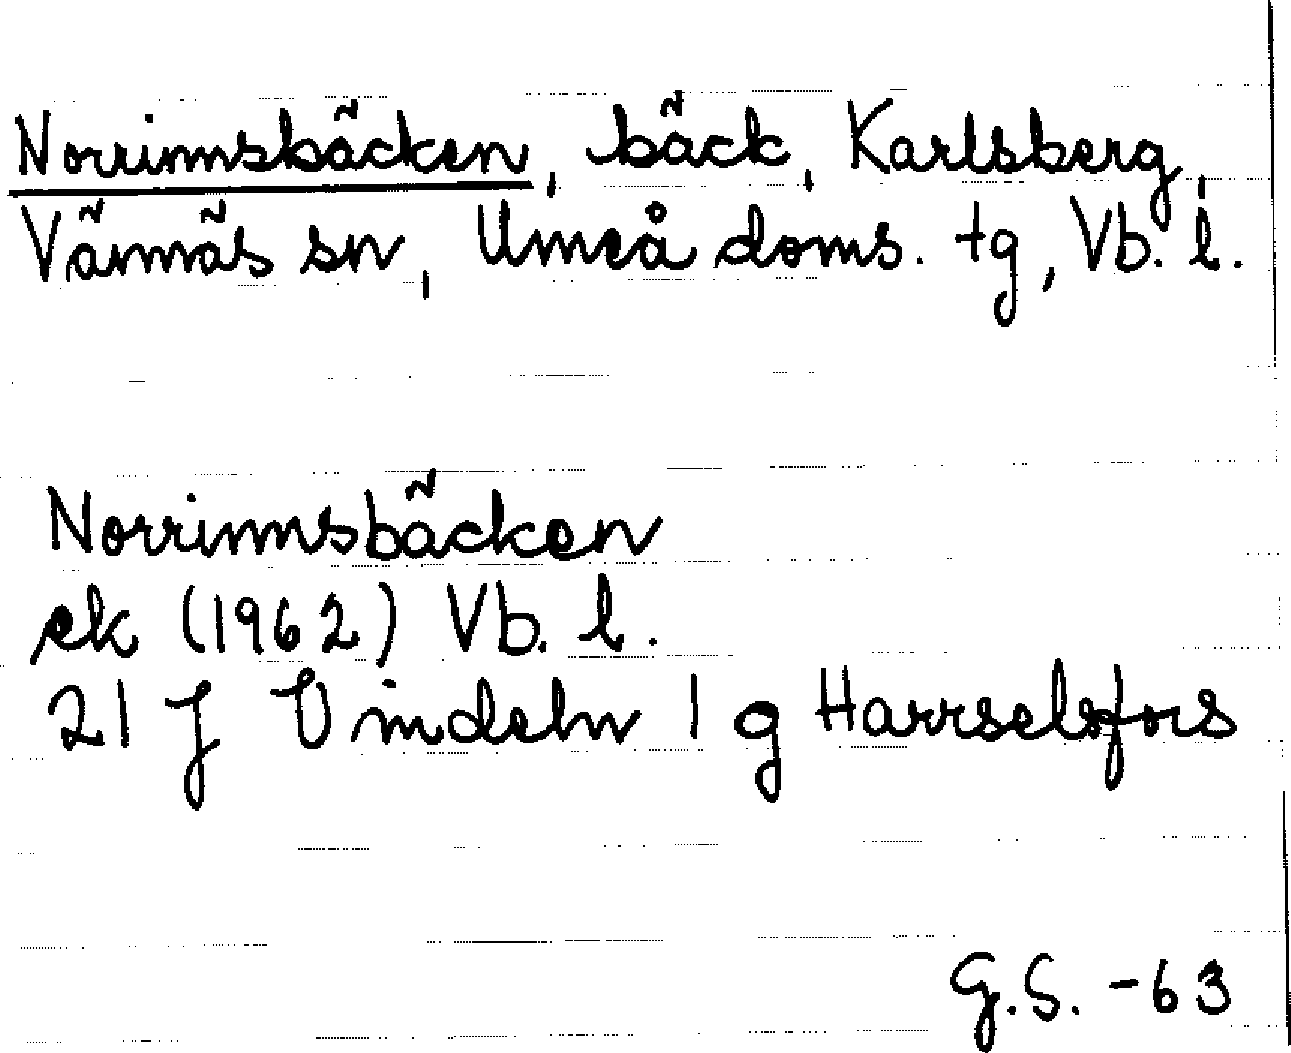 Norrinnsbäcken, bäck, Karlsberg,
Vännäs sn, Umeå doms. tg, Vb. l.
Norrinnsbäcken
ek (1962) Vb. l.
21 J Vindeln 1 g Harrselsfors
G.S. -63